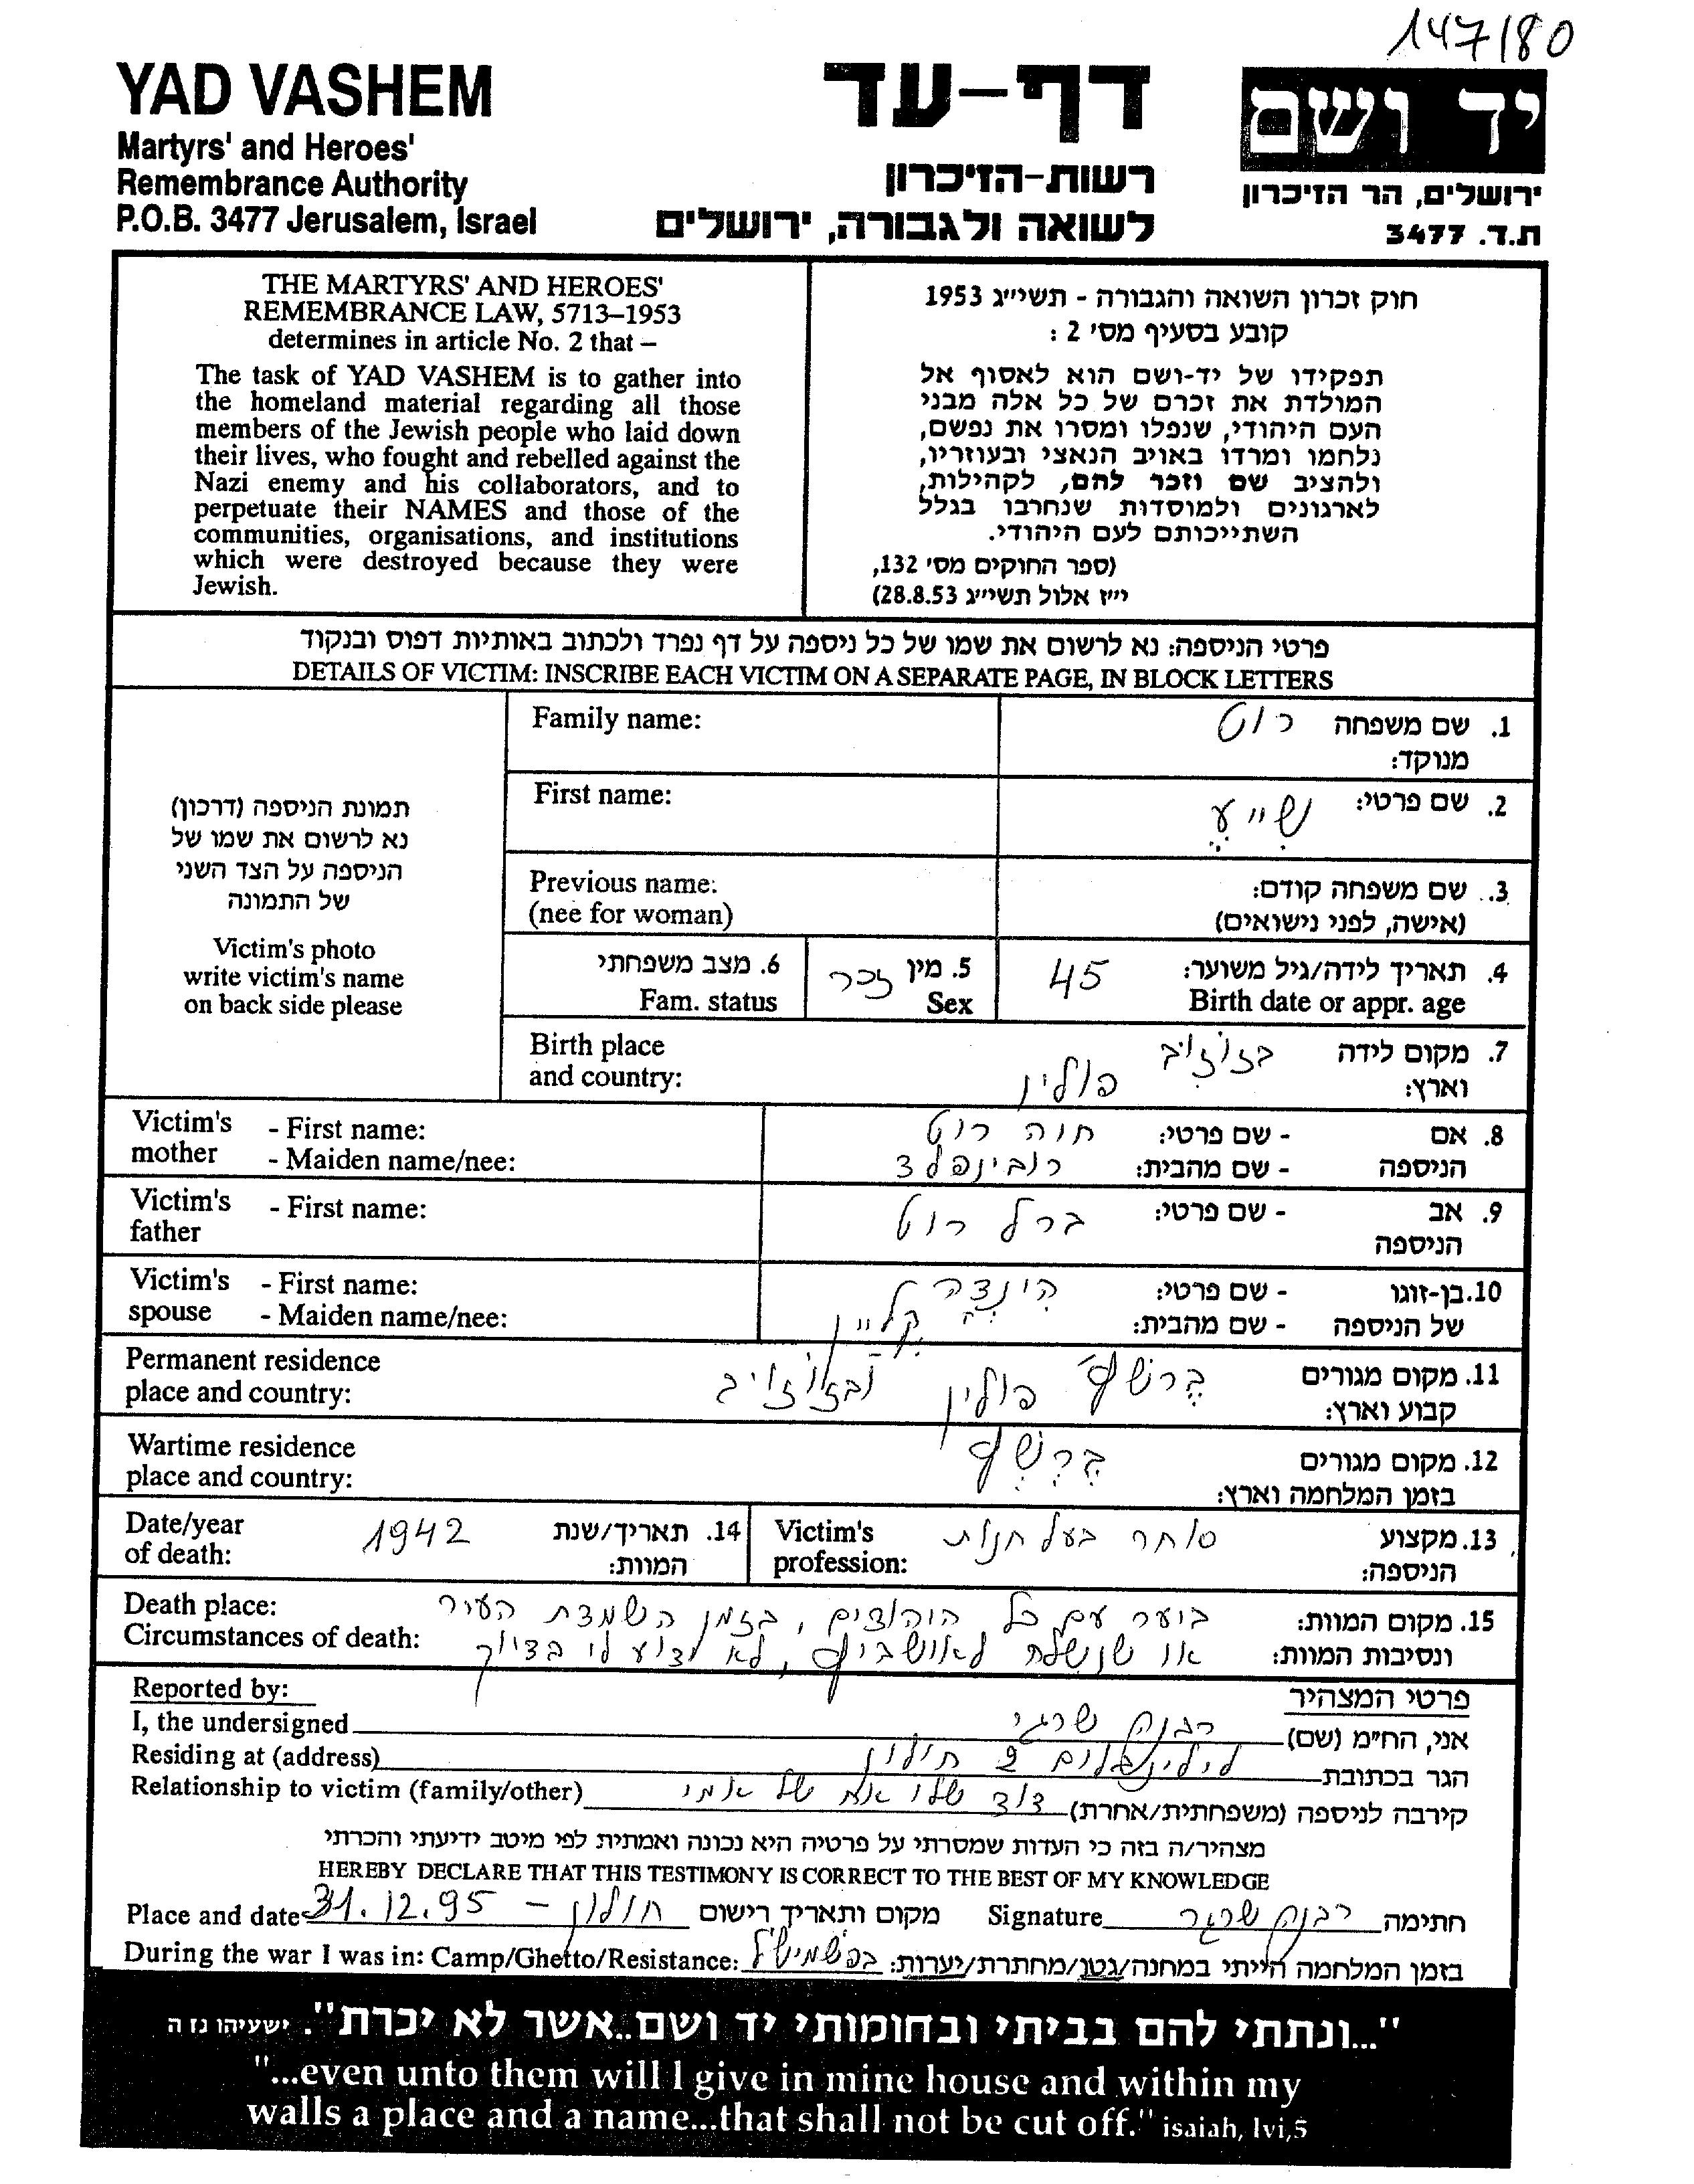 147/80
YAD VASHEM
Martyrs' and Heroes'
Remembrance Authority
P.O.B. 3477 Jerusalem, Israel
דף-עד
רשות-הזיכרון
לשואה ולגבורה, ירושלים
יד ושם
ירושלים, הר הזיכרון
ת.ד. 3477
THE MARTYRS' AND HEROES'
REMEMBRANCE LAW, 5713–1953
determines in article No. 2 that –
The task of YAD VASHEM is to gather into
the homeland material regarding all those
members of the Jewish people who laid down
their lives, who fought and rebelled against the
Nazi enemy and his collaborators, and to
perpetuate their NAMES and those of the
communities, organisations, and institutions
which were destroyed because they were
Jewish.
חוק זכרון השואה והגבורה - תשי״ג 1953
קובע בסעיף מס׳ 2 :
תפקידו של יד-ושם הוא לאסוף אל
המולדת את זכרם של כל אלה מבני
העם היהודי, שנפלו ומסרו את נפשם,
נלחמו ומרדו באויב הנאצי ובעוזריו,
ולהציב שם וזכר להם, לקהילות,
לארגונים ולמוסדות שנחרבו בגלל
השתייכותם לעם היהודי.
(ספר החוקים מס׳ 132,
י״ז אלול תשי״ג 28.8.53)
פרטי הניספה: נא לרשום את שמו של כל ניספה על דף נפרד ולכתוב באותיות דפוס ובנקוד
DETAILS OF VICTIM: INSCRIBE EACH VICTIM ON A SEPARATE PAGE, IN BLOCK LETTERS
תמונת הניספה (דרכון)
נא לרשום את שמו של
הניספה על הצד השני
של התמונה
Victim's photo
write victim's name
on back side please
Family name:
1. שם משפחה רוט
מנוקד:
First name:
2. שם פרטי: שייע
Previous name:
(nee for woman)
3. שם משפחה קודם:
(אישה, לפני נישואים)
4. תאריך לידה/גיל משוער: 45
Birth date or appr. age
5. מין זכר
Sex
6. מצב משפחתי
Fam. status
Birth place
and country:
7. מקום לידה בזוזיב
וארץ: פולין
Victim's - First name:
mother - Maiden name/nee:
8. אם - שם פרטי: חוה רוט
הניספה - שם מהבית: רובינפלד
Victim's - First name:
father
9. אב - שם פרטי: ברל רוט
הניספה
Victim's - First name:
spouse - Maiden name/nee:
10. בן-זוגו - שם פרטי: הינדה
של הניספה - שם מהבית: קליין
Permanent residence
place and country:
11. מקום מגורים
קבוע וארץ: פולין
Wartime residence
place and country:
12. מקום מגורים
בזמן המלחמה וארץ:
13. מקצוע סוחר בעל חנות
הניספה:
Victim's
profession:
14. תאריך/שנת 1942
המוות:
Date/year
of death:
Death place:
Circumstances of death:
15. מקום המוות: עם כל היהודים, בזמן השמדת העיר
ונסיבות המוות: או שנשלח לאושביץ, לא ידוע לי בדיוק
Reported by:
I, the undersigned
Residing at (address)
Relationship to victim (family/other)
פרטי המצהיר
אני, הח״מ (שם) שרגי
הגר בכתובת לילינבלום 2 חולון
קירבה לניספה (משפחתית/אחרת) דוד שלי אח של אמי
מצהיר/ה בזה כי העדות שמסרתי על פרטיה היא נכונה ואמתית לפי מיטב ידיעתי והכרתי
HEREBY DECLARE THAT THIS TESTIMONY IS CORRECT TO THE BEST OF MY KNOWLEDGE
Place and date 31.12.95 – חולון מקום ותאריך רישום Signature חתימה
During the war I was in: Camp/Ghetto/Resistance: בפשמישל בזמן המלחמה הייתי במחנה/גטו/מחתרת/יערות:
"...ונתתי להם בביתי ובחומותי יד ושם..אשר לא יכרת". ישעיהו נז ה
"...even unto them will I give in mine house and within my
walls a place and a name...that shall not be cut off." isaiah, lvi,5